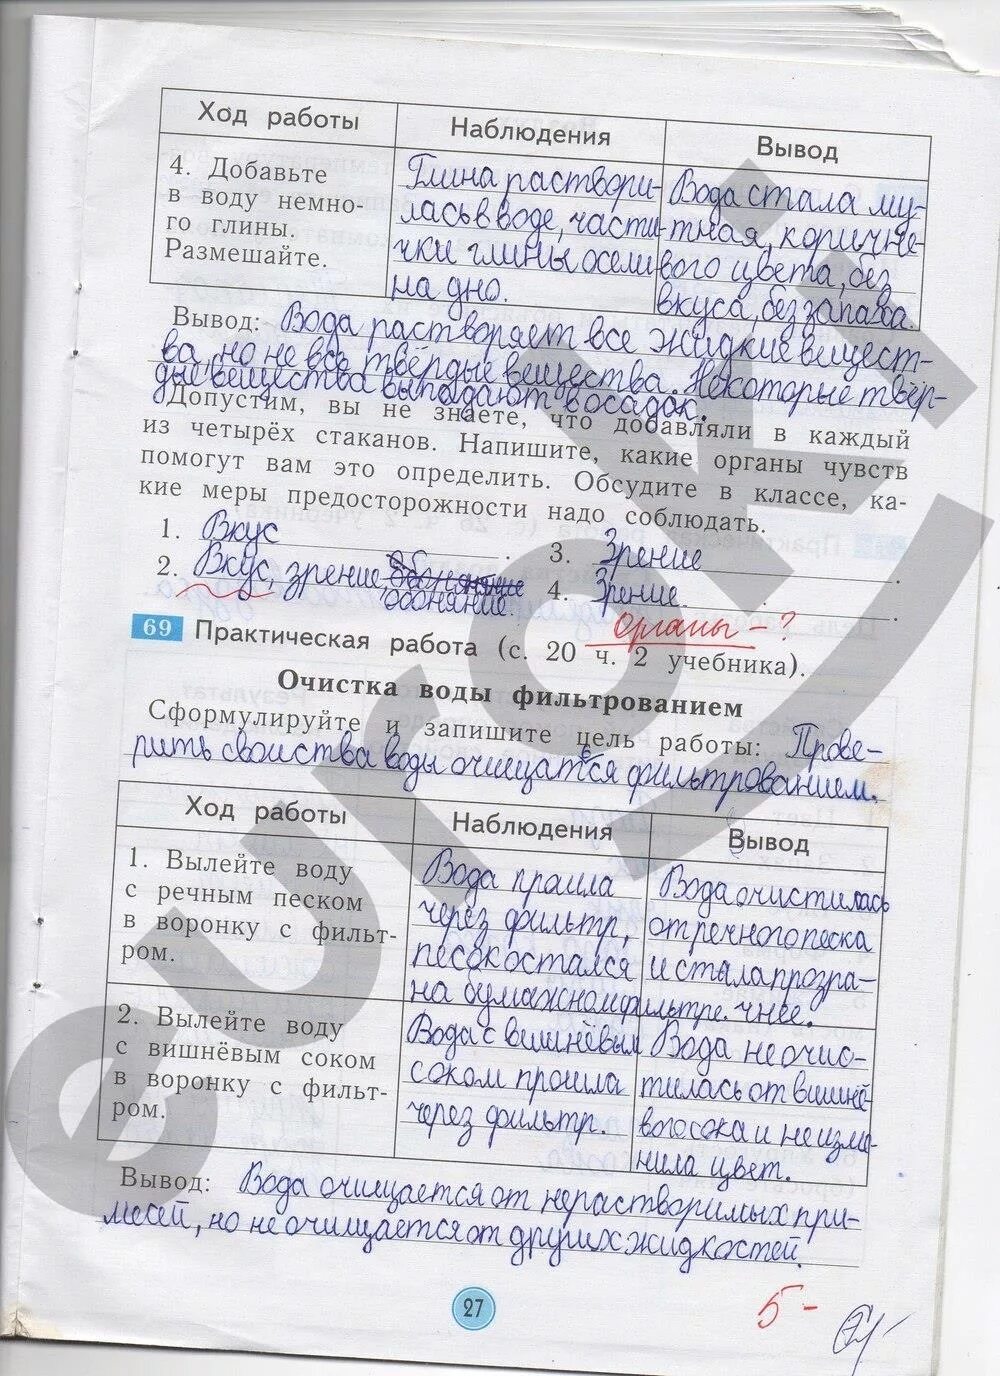 Ход работы
Наблюдения
Вывод
4. Добавьте
в воду немно-
го глины.
Размешайте.
Глина раствори-
лась в воде, части-
чки глины осели
на дно.
Вода стала му-
тная, коричне-
вого цвета, без
вкуса, без запаха.
Вывод: Вода растворяет все жидкие вещест-
ва, но не все твёрдые вещества. Некоторые твёр-
дые вещества выпадают в осадок.
Допустим, вы не знаете, что добавляли в каждый
из четырёх стаканов. Напишите, какие органы чувств
помогут вам это определить. Обсудите в классе, ка-
кие меры предосторожности надо соблюдать.
1. Вкус.
2. Вкус, зрение,
обоняние.
3. Зрение.
4. Зрение.
Органы - ?
69 Практическая работа (с. 20 ч. 2 учебника).
Очистка воды фильтрованием
Сформулируйте и запишите цель работы: Прове-
рить свойства воды очищаться фильтрованием.
Ход работы
Наблюдения
Вывод
1. Вылейте воду
с речным песком
в воронку с фильт-
ром.
Вода прошла
через фильтр,
песок остался
на бумажном фильтре.
Вода очистилась
от речного песка
и стала прозра-
чнее.
2. Вылейте воду
с вишнёвым соком
в воронку с фильт-
ром.
Вода с вишнёвым
соком прошла
через фильтр.
Вода не очис-
тилась от вишнё-
вого сока и не изме-
нила цвет.
Вывод: Вода очищается от нерастворимых при-
месей, но не очищается от других жидкостей.
27
5-
euroki